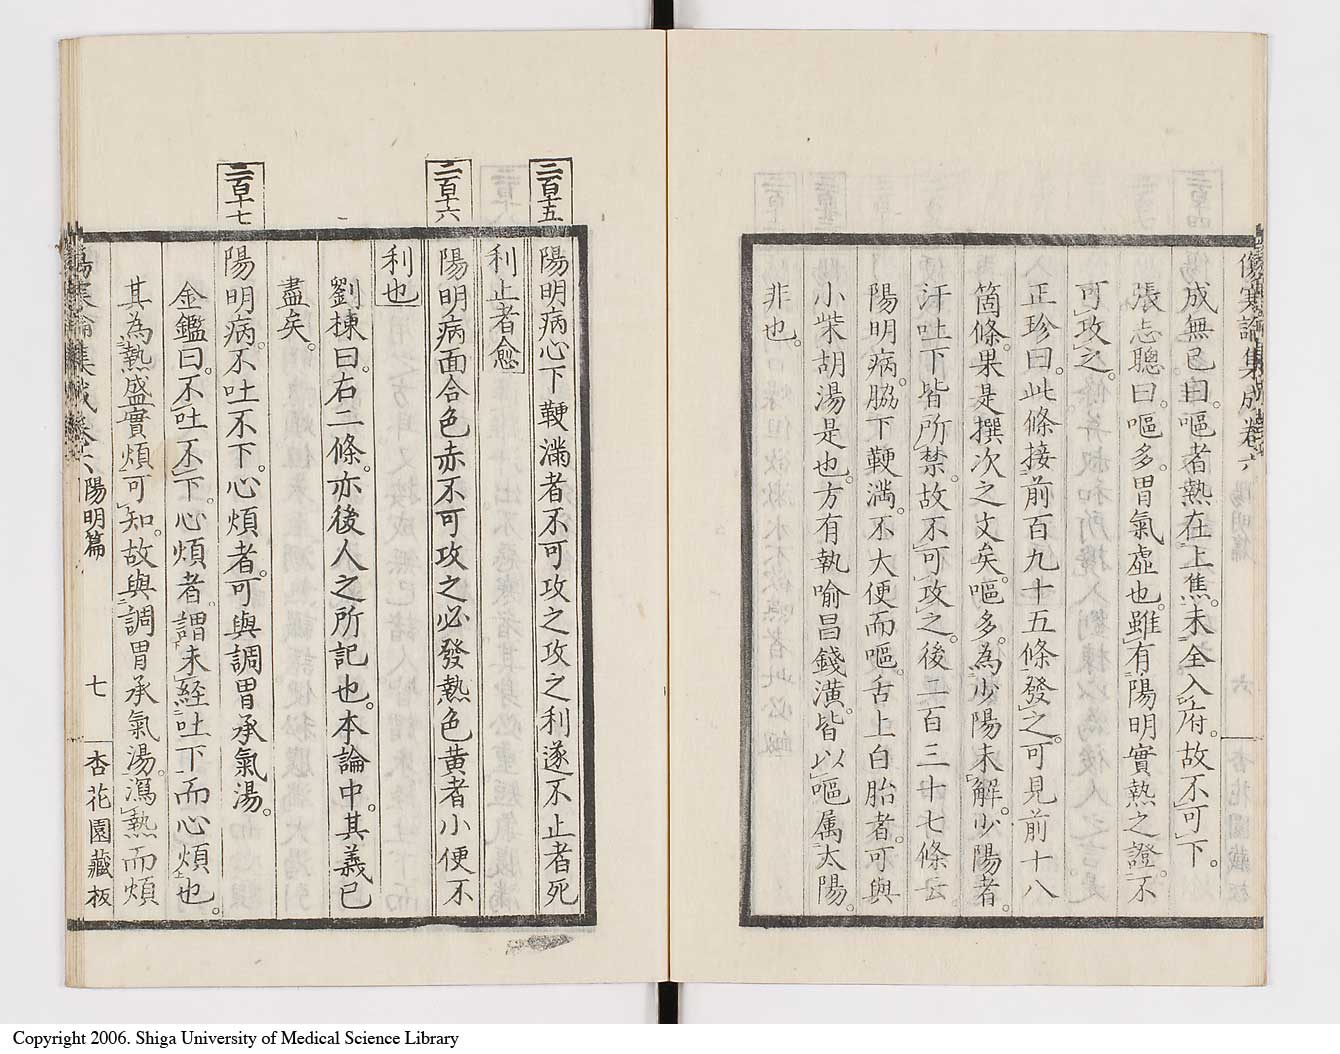 傷寒論集成卷六
成無已曰。嘔者熱在上焦。未全入府。故不可下。
張志聰曰。嘔多。胃氣虛也。雖有陽明實熱之證。不
可攻之。
正珍曰。此條接前百九十五條發之。可見前十八
箇條。果是撰次之文矣。嘔多。為少陽未解。少陽者。
汗吐下皆所禁。故不可攻之。後二百三十七條云。
陽明病。脇下鞕滿。不大便而嘔。舌上白胎者。可與
小柴胡湯是也。方有執喻昌錢潢。皆以嘔属太陽。
非也。
二百十五
陽明病心下鞕滿者不可攻之攻之利遂不止者死
利止者愈
二百十六
陽明病面合色赤不可攻之必發熱色黄者小便不
利也
劉棟曰。右二條。亦後人之所記也。本論中。其義已
盡矣。
二百十七
陽明病。不吐不下。心煩者。可與調胃承氣湯。
金鑑曰。不吐不下。心煩者。謂未經吐下而心煩也。
其為熱盛實煩可知。故與調胃承氣湯。瀉熱而煩
傷寒論集成卷六 陽明篇 七 杏花園藏板
Copyright 2006. Shiga University of Medical Science Library